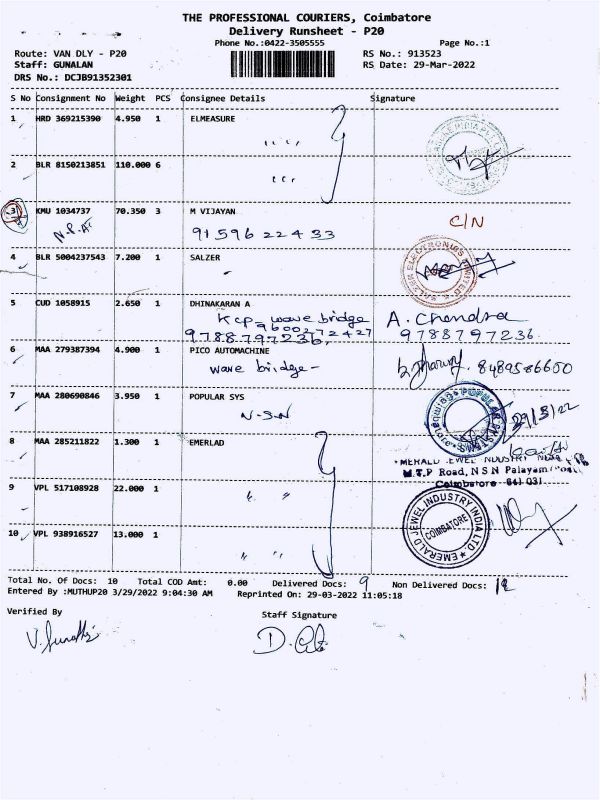 THE PROFESSIONAL COURIERS, Coimbatore
Delivery Runsheet - P20
Phone No.:0422-3505555 Page No.:1
Route: VAN DLY - P20 RS No.: 913523
Staff: GUNALAN RS Date: 29-Mar-2022
DRS No.: DCJB91352301
S No Consignment No Weight PCS Consignee Details Signature
1 HRD 369215390 4.950 1 ELMEASURE
2 BLR 8150213851 110.000 6
3 KMU 1034737 70.350 3 M VIJAYAN
C/N
91596 22433
4 BLR 5004237543 7.200 1 SALZER
SALZER ELECTRONICS LIMITED
5 CUD 1058915 2.650 1 DHINAKARAN A
Kcp- wave bridge A. Chendra
9600272427
9788797236, 9788797236
6 MAA 279387394 4.900 1 PICO AUTOMACHINE
wave bridge- 8489586600
7 MAA 280690846 3.950 1 POPULAR SYS
N-S-N 29/3/22
8 MAA 285211822 1.300 1 EMERLAD
M.T.P Road, N S N Palayam
Coimbatore - 641 031
9 VPL 517108928 22.000 1
EMERALD JEWEL INDUSTRY INDIA LTD.
COIMBATORE
10 VPL 938916527 13.000 1
Total No. Of Docs: 10 Total COD Amt: 0.00 Delivered Docs: 9 Non Delivered Docs:
Entered By :MUTHUP20 3/29/2022 9:04:30 AM Reprinted On: 29-03-2022 11:05:18
Verified By Staff Signature